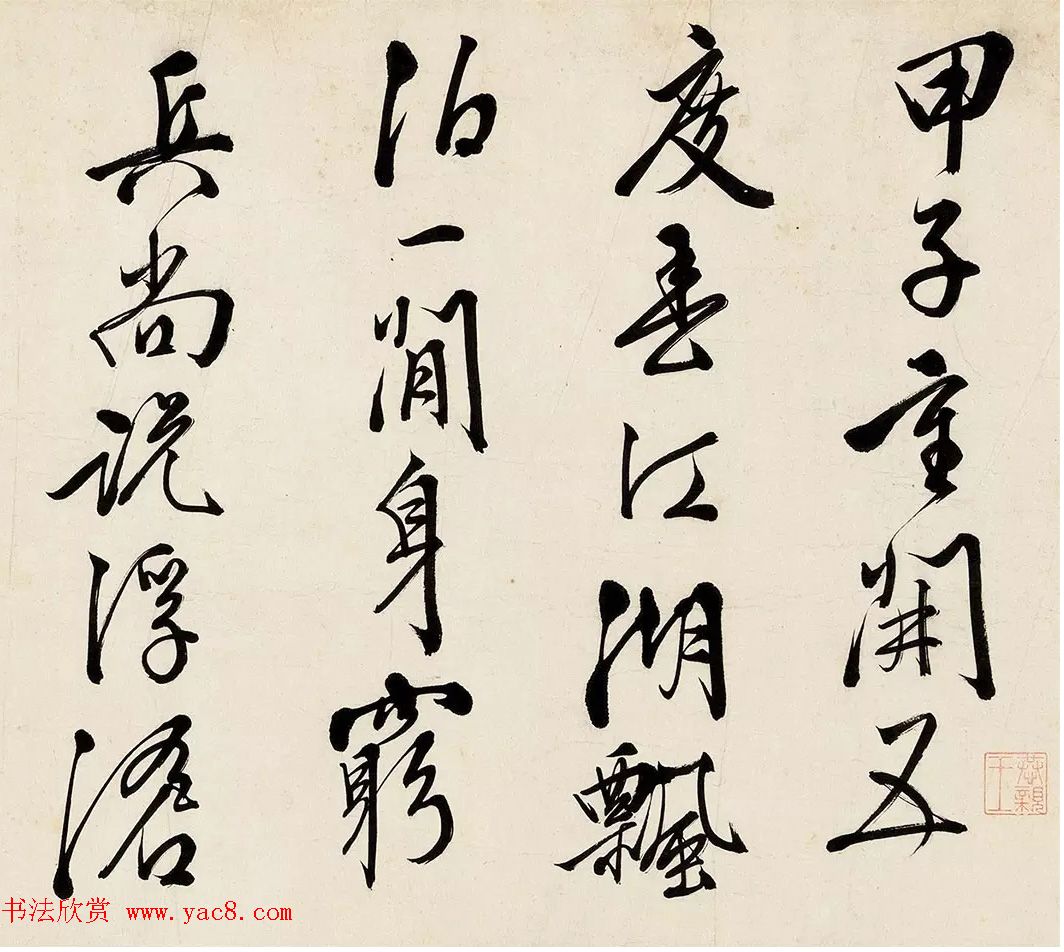 甲子重開五
度春江湖飄
泊一閒身窮
兵尚說浮
澹
恭親王
书法欣赏 www.yac8.com